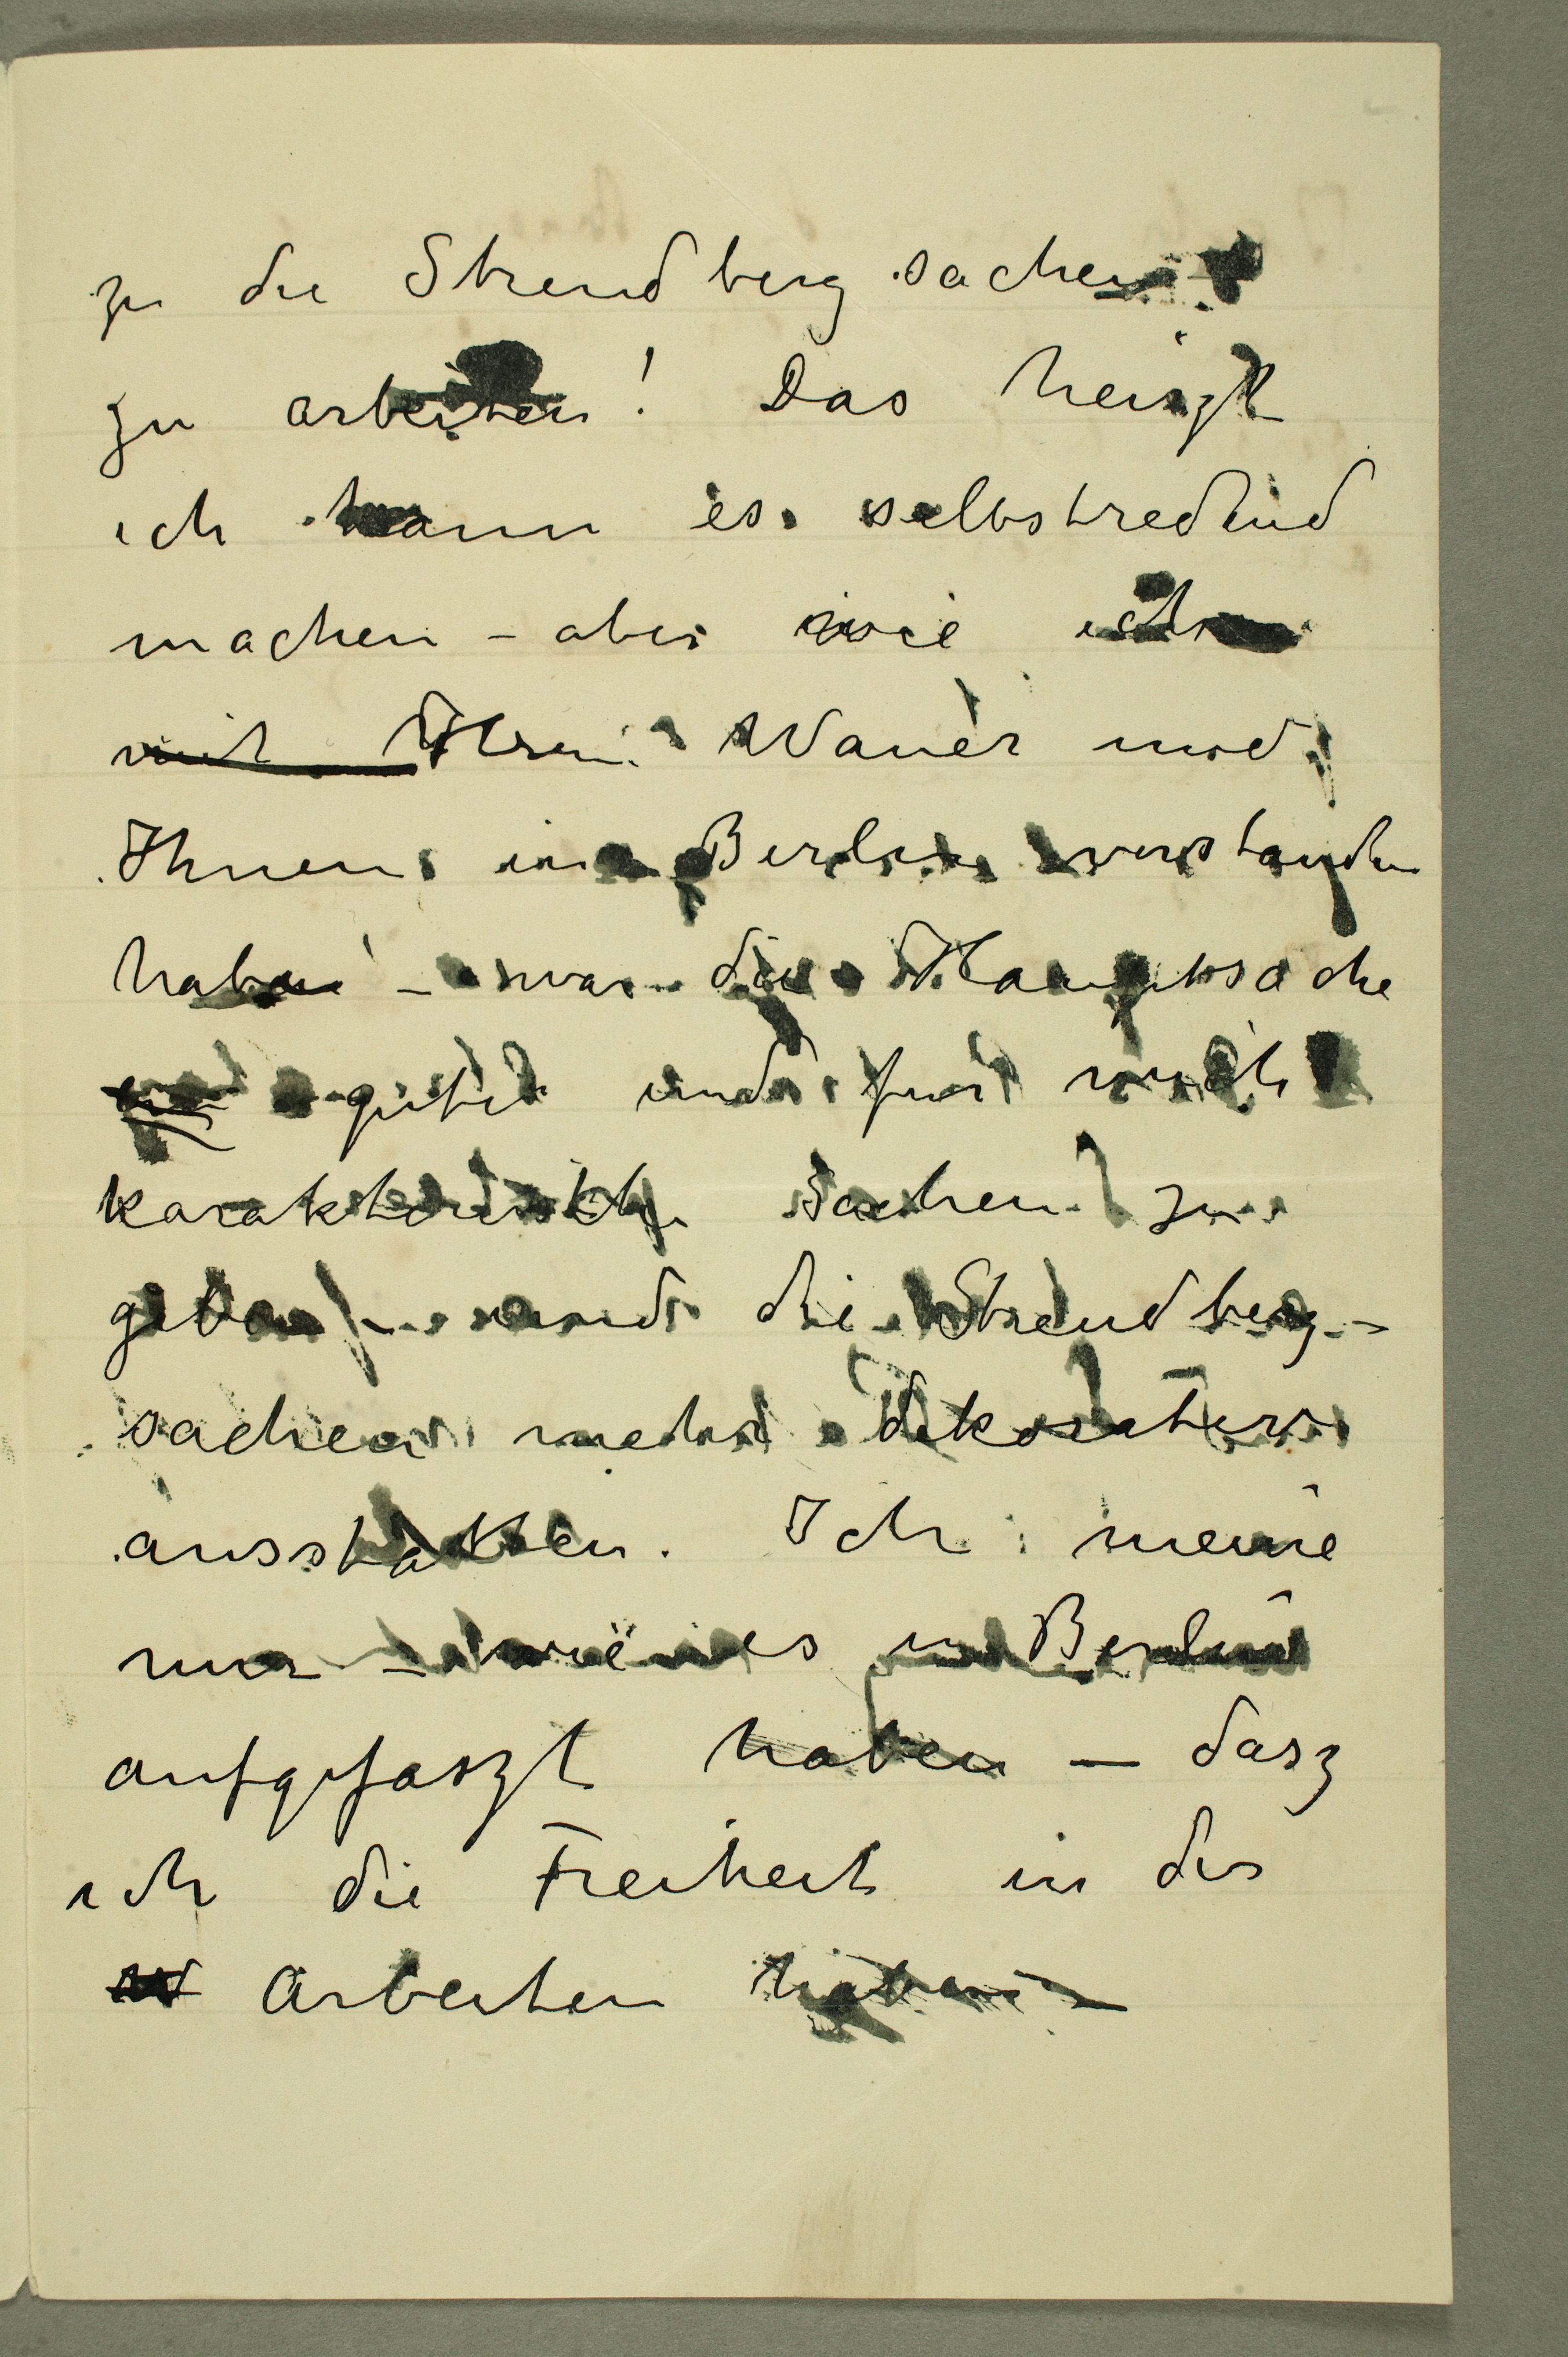 zu die Strendberg sachen
zu arbeiten! Das heiszt
ich kann es selbstredend
machen – aber wie ich
mit Hrn. Wauer und
Ihnen in Berlin verstanden
haben – war die Hauptsache
gute und fur mich
karakteristiche Sachen zu
geben – und die Strendberg-
sachen mehr dekorativ
ausstatten. Ich meine
nur – wie es in Berlin
aufgefaszt haben – dasz
ich die Freiheit in der
Arbeiten haben –